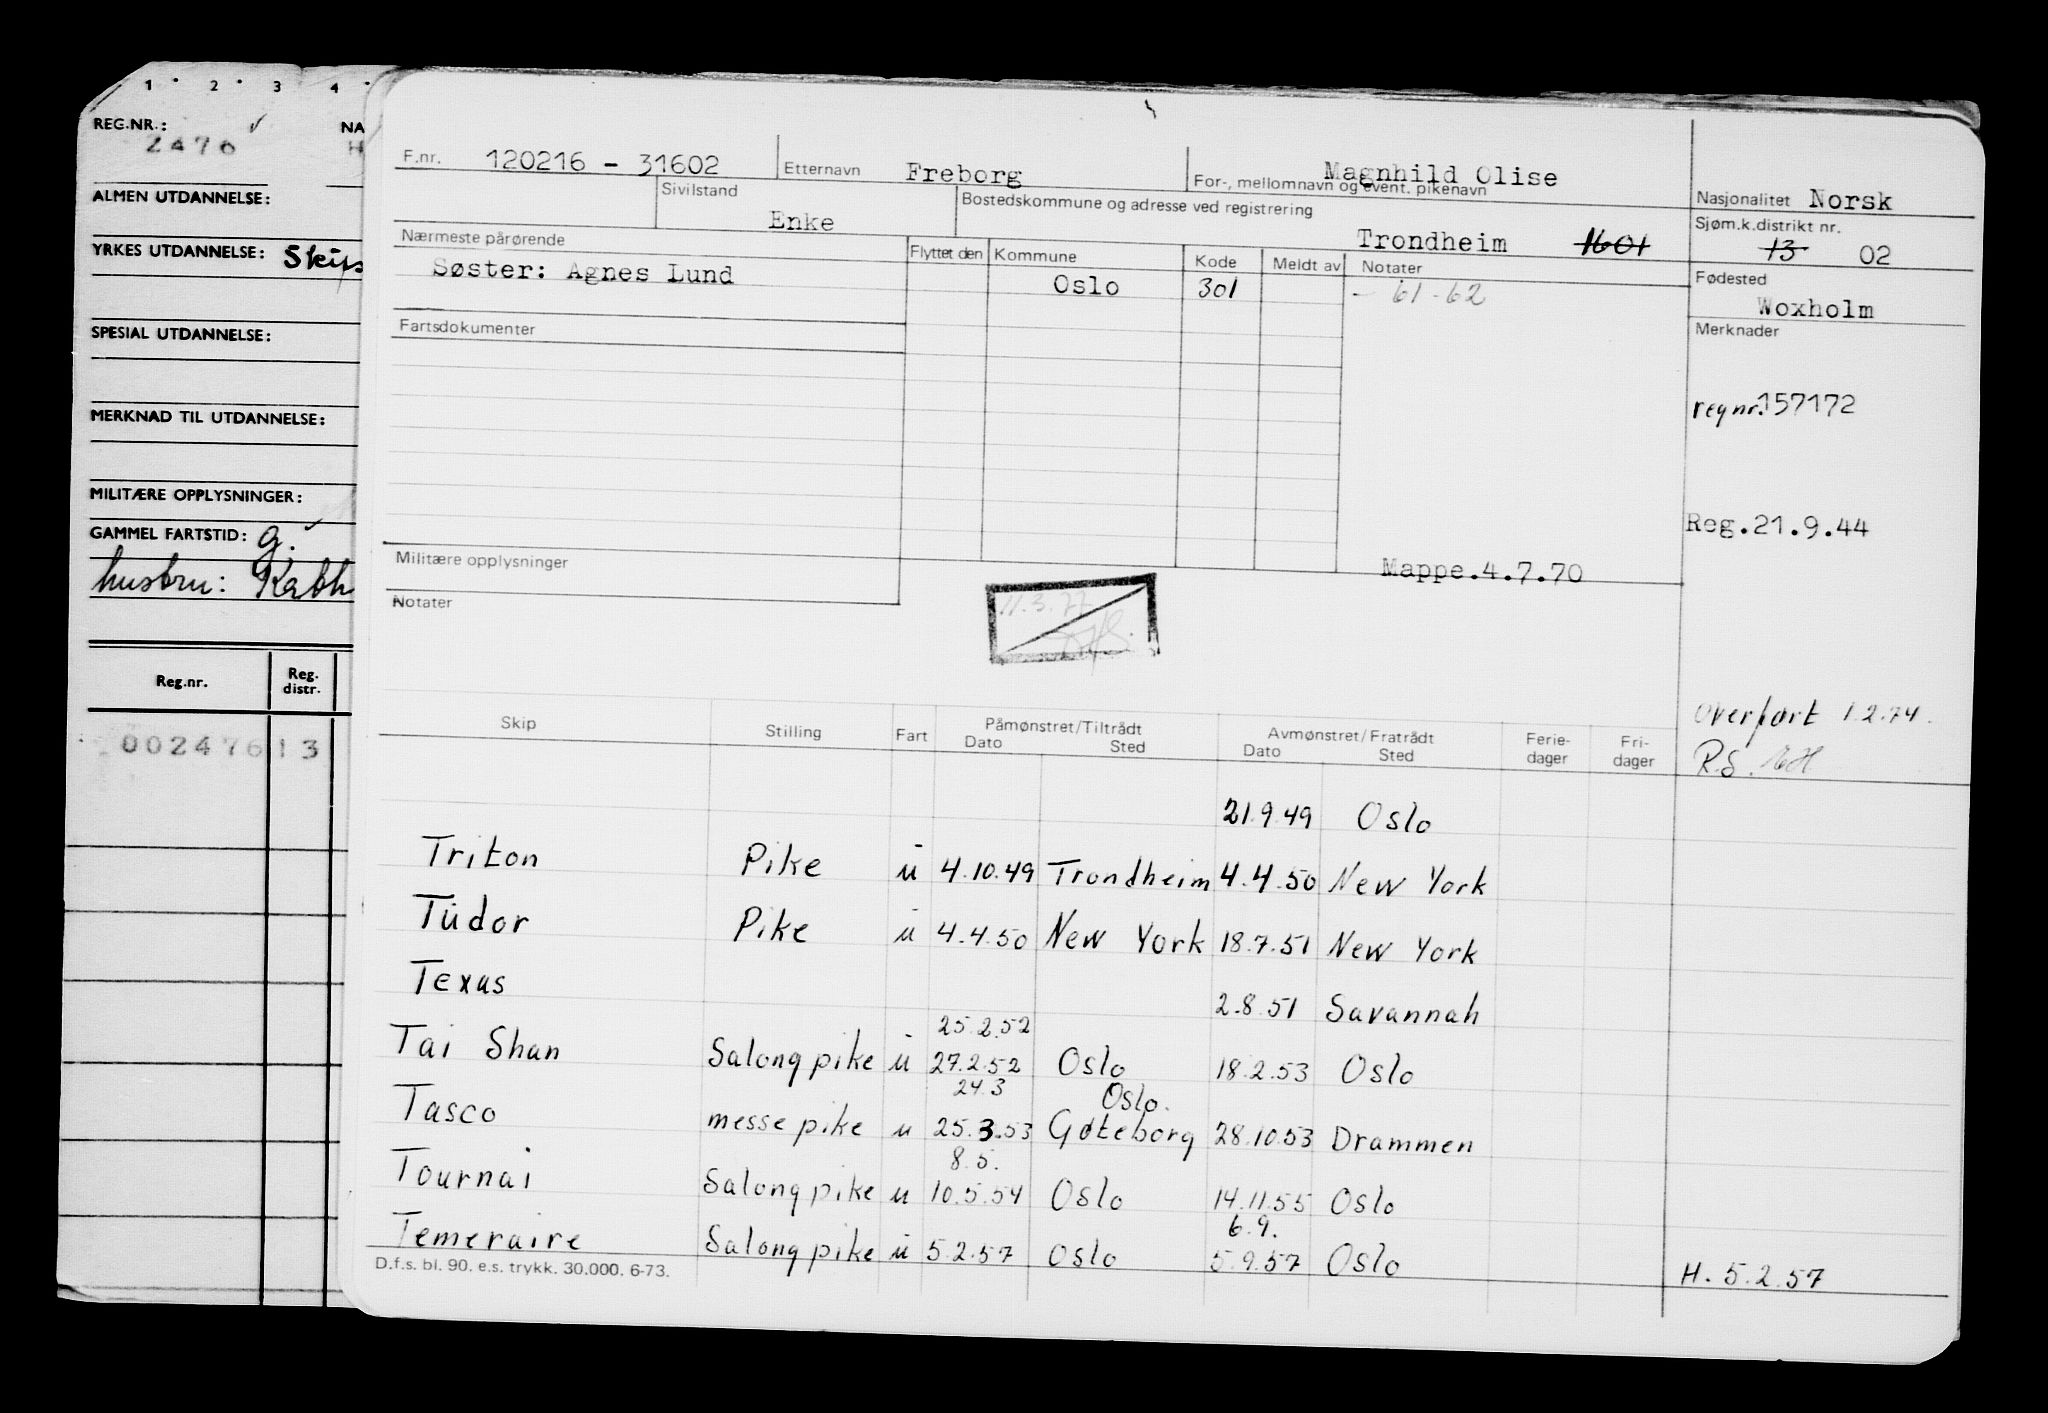 1 2 3 4
REG.NR.: 2476 NA
H
ALMEN UTDANNELSE:
YRKES UTDANNELSE: Skips
SPESIAL UTDANNELSE:
MERKNAD TIL UTDANNELSE:
MILITÆRE OPPLYSNINGER:
GAMMEL FARTSTID: g.
husbru: Kabh
Reg.nr. Reg. distr.
00247613
F.nr. 120216 - 31602 Etternavn Freborg For-, mellomnavn og event. pikenavn Magnhild Olise
Nasjonalitet Norsk
Sivilstand Enke Bostedskommune og adresse ved registrering Trondheim 1601
Sjøm.k.distrikt nr. 13 02
Nærmeste pårørende Flyttet den Kommune Kode Meldt av Notater
Søster: Agnes Lund Oslo 301 - 61-62
Fødested Woxholm
Fartsdokumenter
Merknader
regnr.157172
Reg.21.9.44
Militære opplysninger Mappe.4.7.70
Notater
11.3.77
Overført 1.2.74.
R.S.
Skip Stilling Fart Påmønstret/Tiltrådt Dato Sted Avmønstret/Fratrådt Dato Sted Ferie-dager Fri-dager
21.9.49 Oslo
Triton Pike u 4.10.49 Trondheim 4.4.50 New York
Tudor Pike u 4.4.50 New York 18.7.51 New York
Texas 2.8.51 Savannah
25.2.52
Tai Shan Salongpike u 27.2.52 Oslo 18.2.53 Oslo
24.3 Oslo.
Tasco messepike u 25.3.53 Gøteborg 28.10.53 Drammen
8.5.
Tournai Salongpike u 10.5.54 Oslo 14.11.55 Oslo
6.9.
Temeraire Salongpike u 5.2.57 Oslo 5.9.57 Oslo H. 5.2.57
D.f.s. bl. 90. e.s. trykk. 30.000. 6-73.